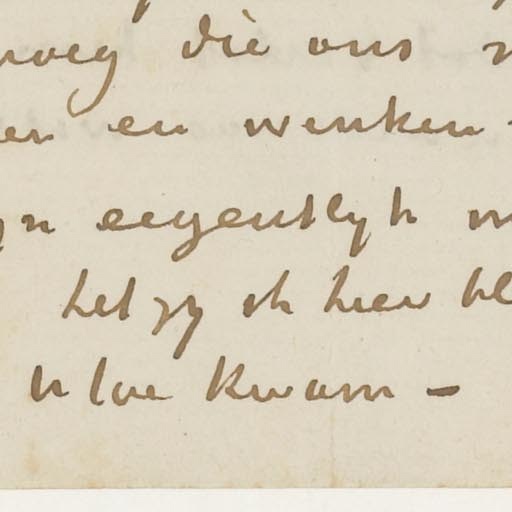 noeg die ons
en en wenken
yn eigentlyk
het zy ik hier bl
U toe kwam –